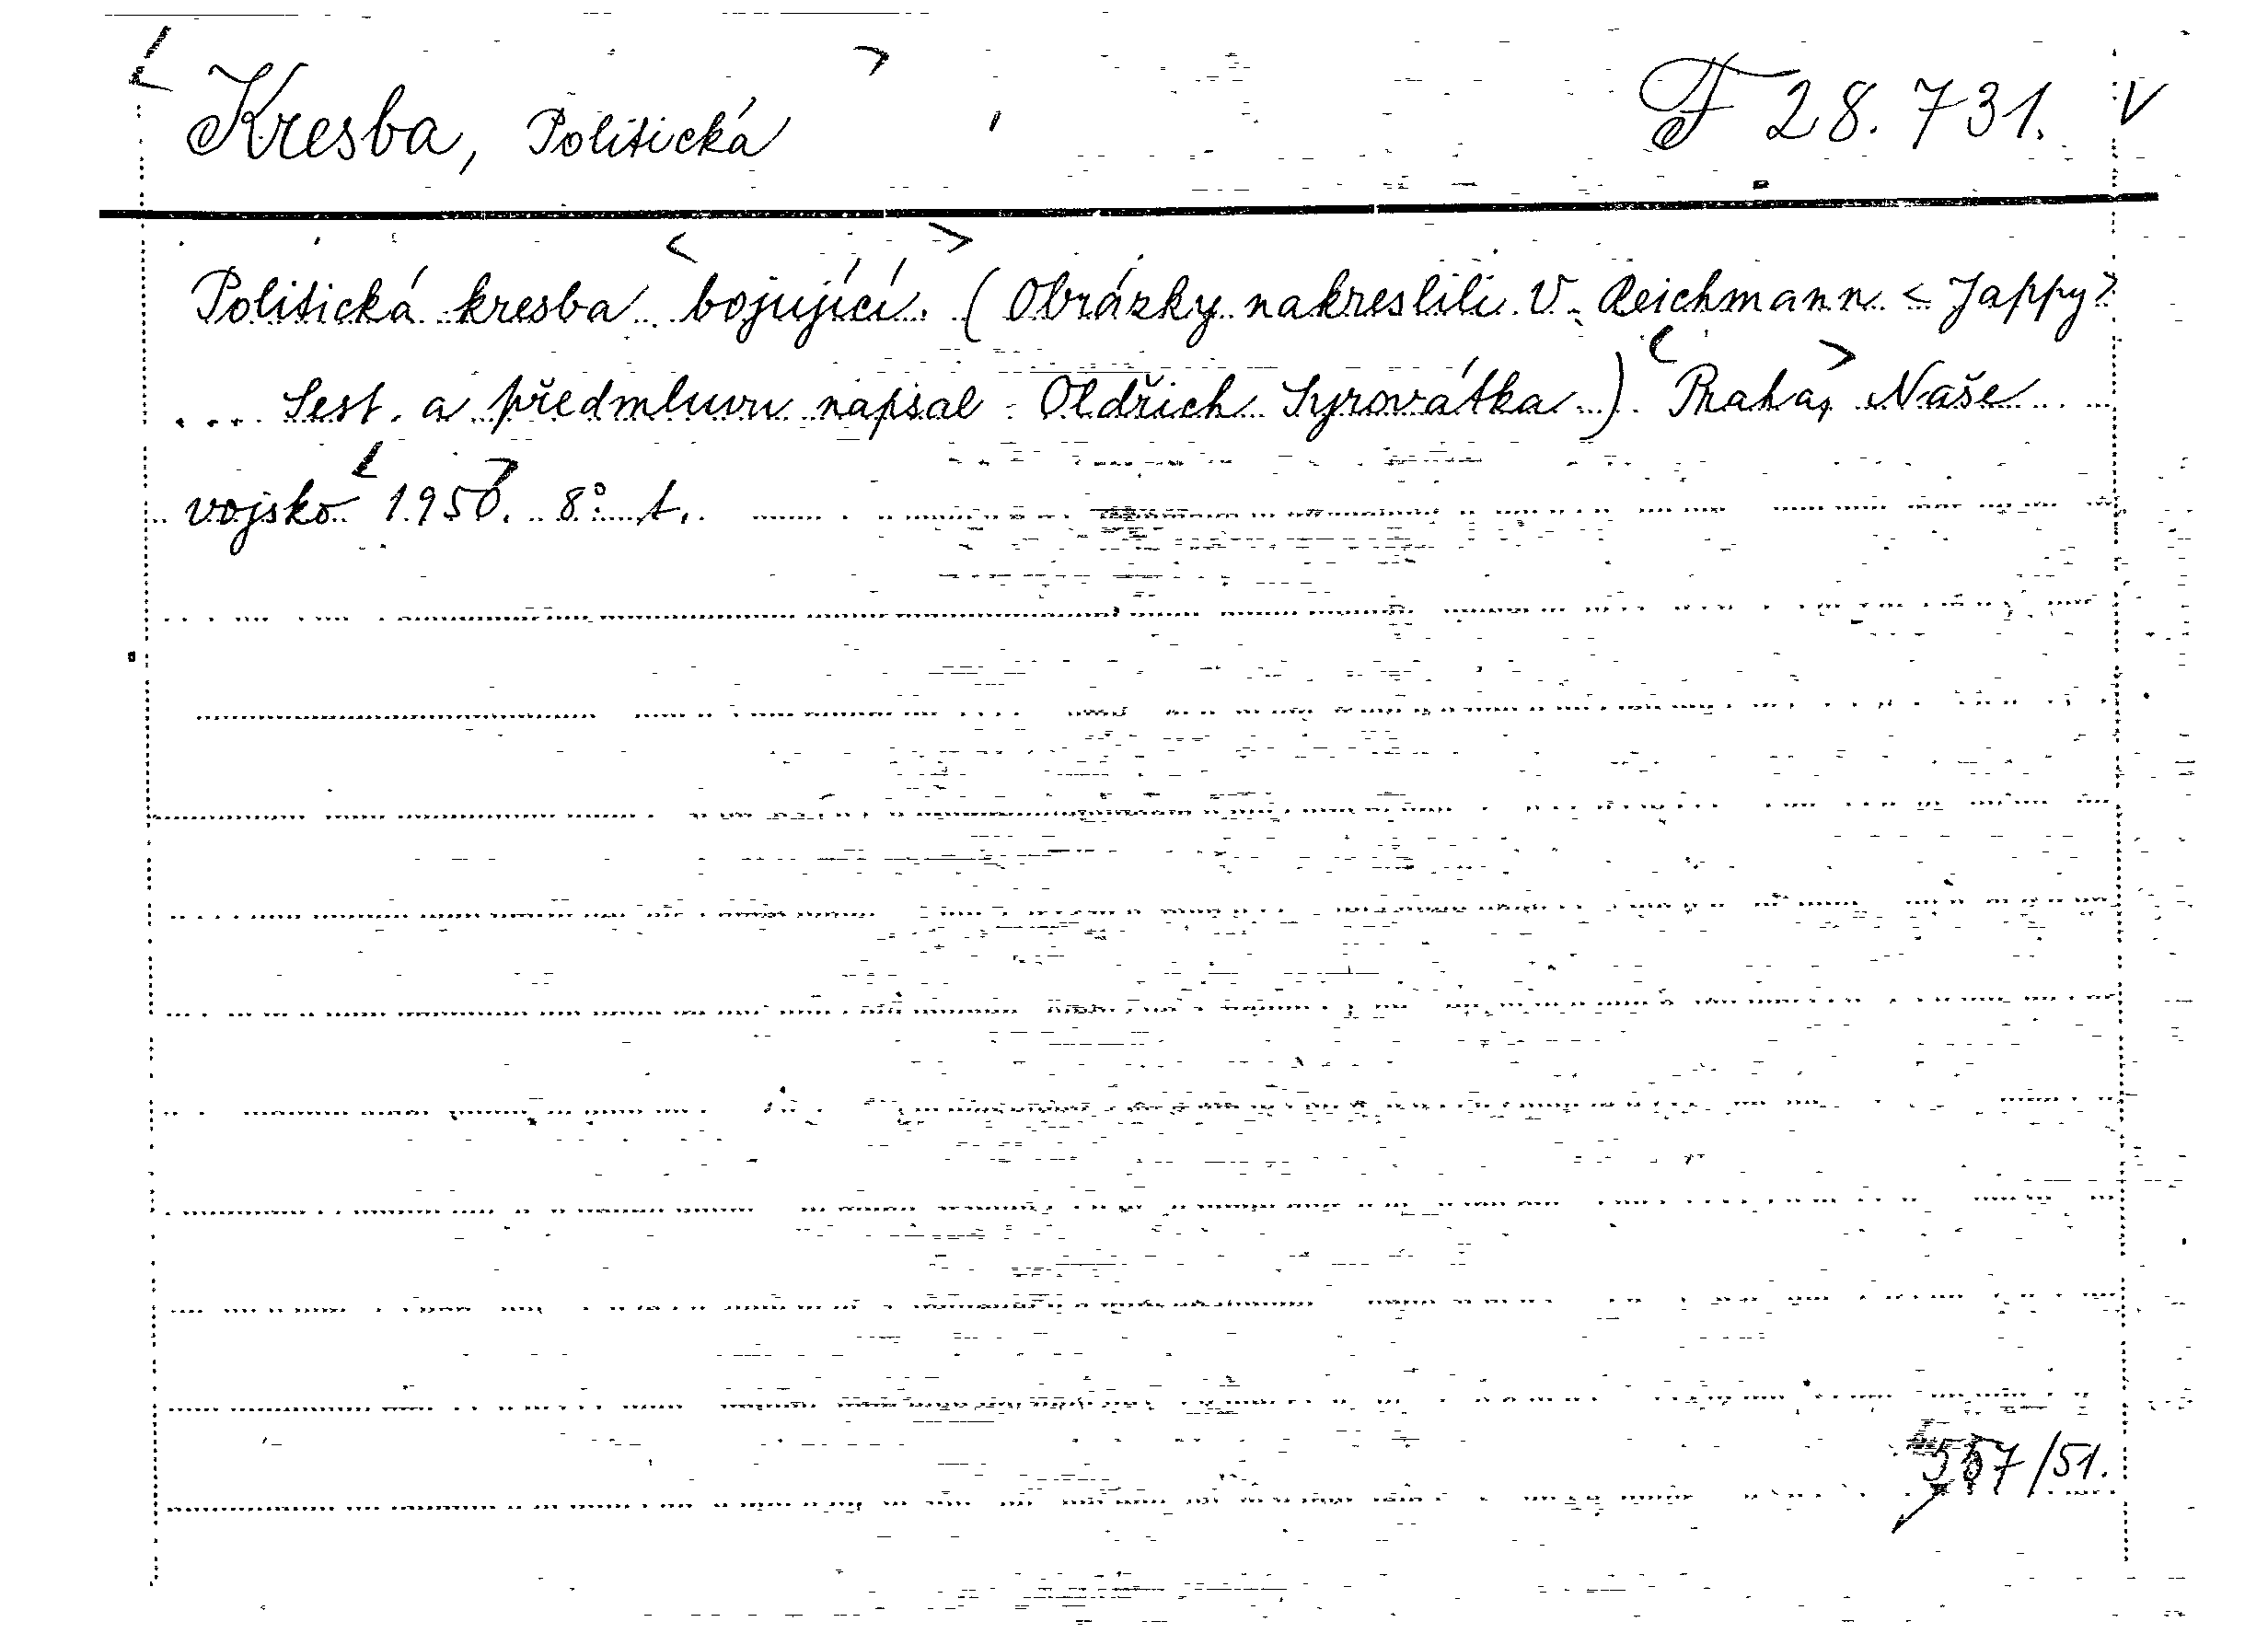 Kresba, Politická F 28.731. V
Politická kresba bojující. (Obrázky nakreslili V. Reichmann <Jappy>
... Sest. a předmluvu napsal Oldřich Syrovátka). Praha, Naše
vojsko 1950. 8° t.
557/51.